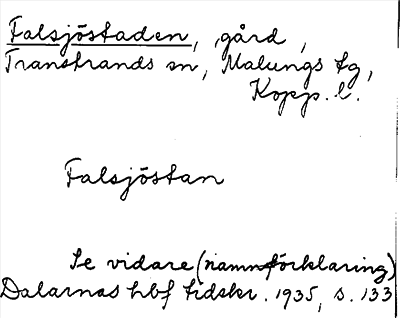 Falsjöstaden, gård,
Transtrands sn, Malungs tg,
Kopp. l.
Falsjöstan
Se vidare (namnförklaring)
Dalarnas hbf tidskr. 1935, s. 133